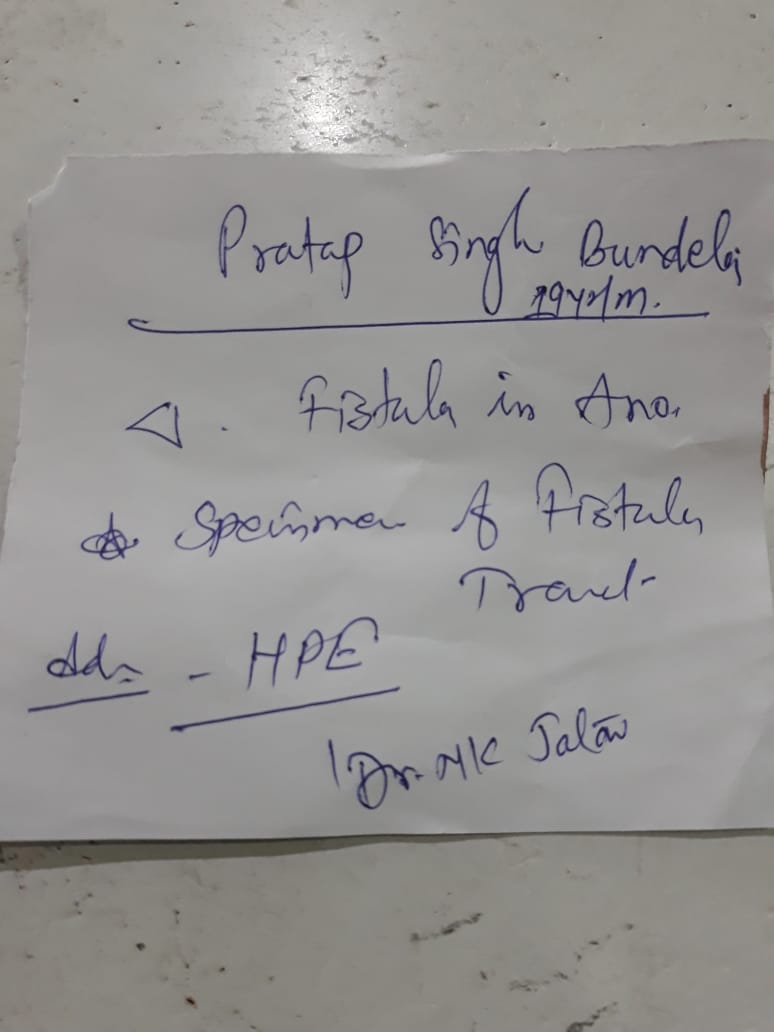 Pratap Singh Bundela
29yr/m.
Fistula in Ano.
Specimen of Fistula
Tract
Adv - HPE
Dr. NK Jalan